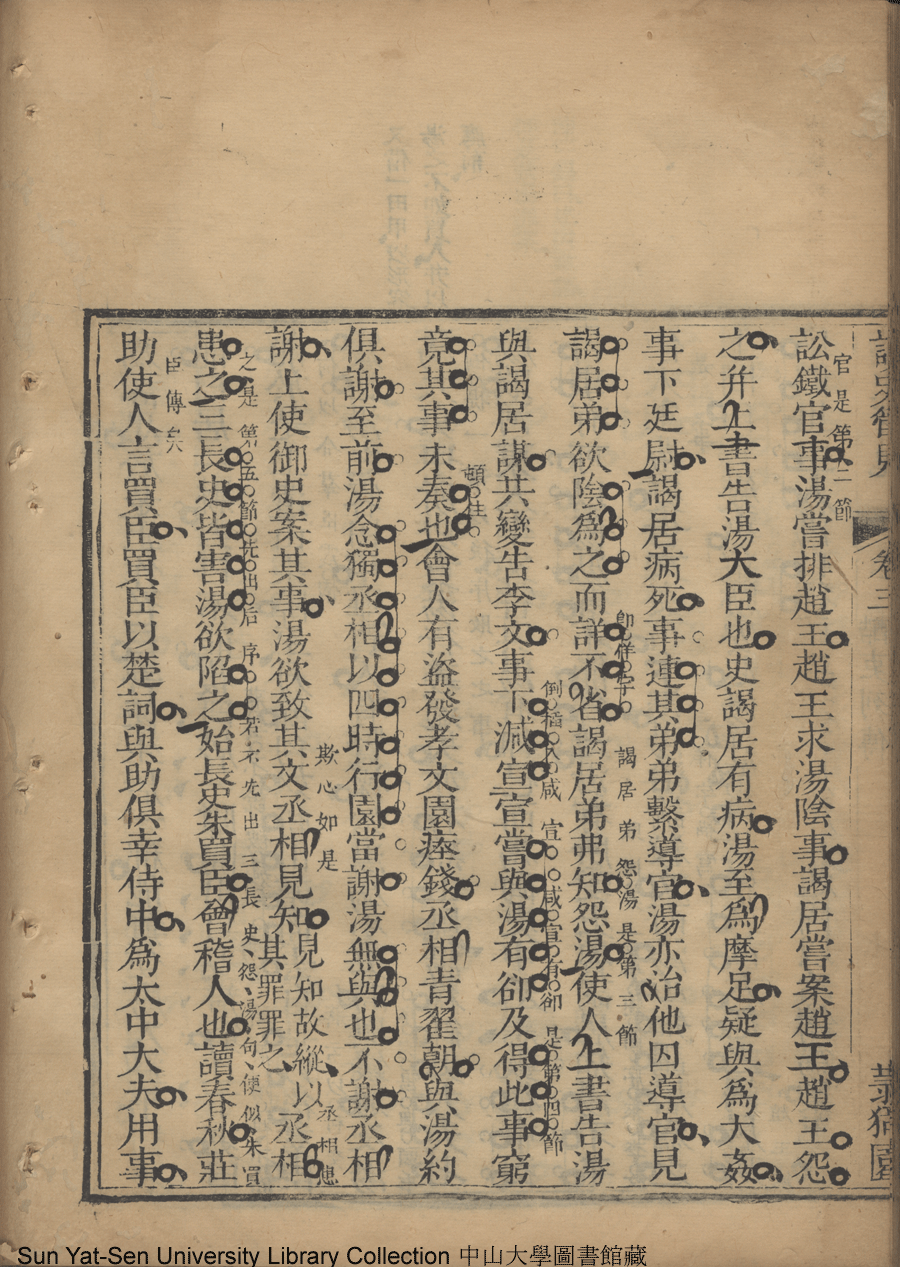 卷三
訟鐵官事湯嘗排趙王趙王求湯陰事謁居嘗案趙王趙王怨
官是第二節
之并上書告湯大臣也史謁居有病湯至為摩足疑與為大姦
事下廷尉謁居病死事連其弟弟繫導官湯亦治他囚導官見
謁居弟欲陰為之而詳不省謁居弟弗知怨湯使人上書告湯
即佯字 謁居弟怨湯是第三節
與謁居謀共變告李文事下減宣宣嘗與湯有卻及得此事窮
倒插入咸宣 咸宣有卻是第四節
竟其事未奏也會人有盜發孝文園瘞錢丞相青翟朝與湯約
頓住
俱謝至前湯念獨丞相以四時行園當謝湯無與也不謝丞相
謝上使御史案其事湯欲致其文丞相見知見知故縱以其罪罪之丞相
欺心如是 丞相患
患之三長史皆害湯欲陷之始長史朱買臣會稽人也讀春秋莊
之是第五節先出后序 若不先出三長史怨湯句便似朱買
助使人言買臣買臣以楚詞與助俱幸侍中為太中大夫用事
臣傳矣
Sun Yat-Sen University Library Collection 中山大學圖書館藏